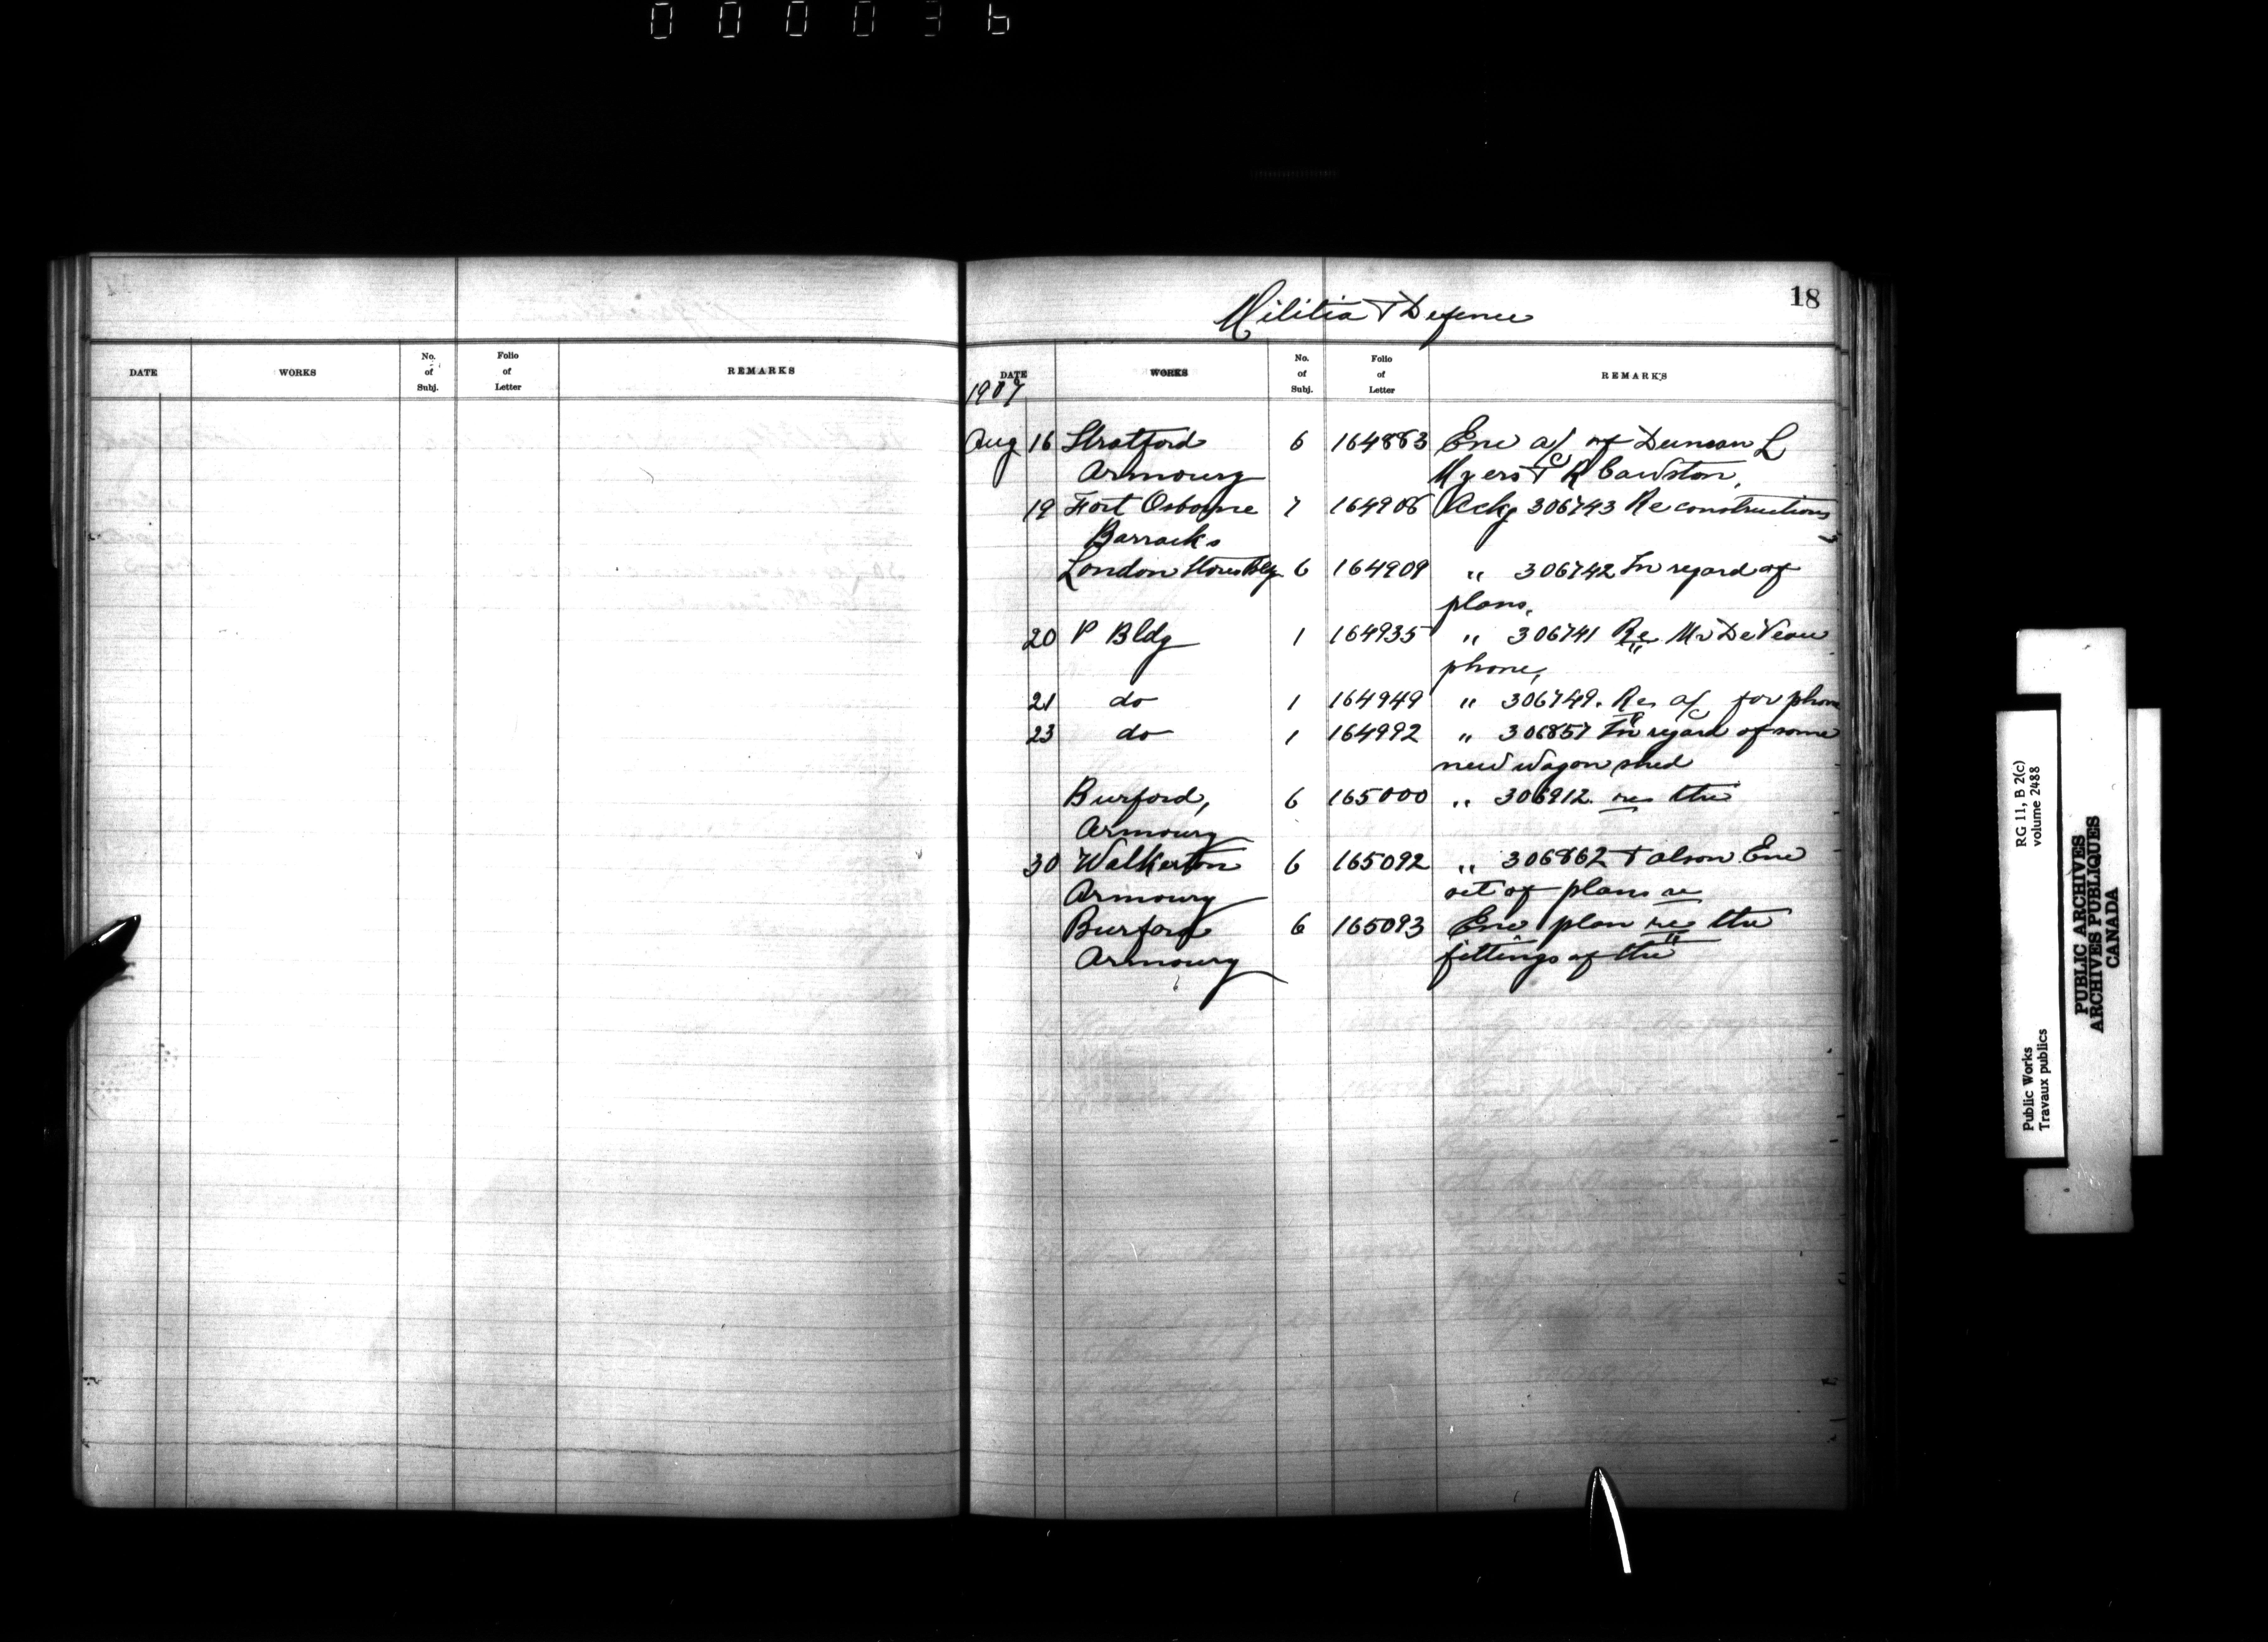 000036
18
Militia & Defence
DATE WORKS No. of Subj. Folio of Letter REMARKS
DATE WORKS No. of Subj. Folio of Letter REMARKS
1907
Aug 16 Stratford 6 164883 Enc a/c of Duncan L
Armoury Myers & R Cawston,
19 Fort Osborne 7 164906 Ackg 306743 Re constructions
Barracks
London Stores Bldg 6 164909 " 306742 In regard of
plans,
20 P Bldg 1 164935 " 306741 Re Mr DeVeau
phone,
21 do 1 164949 " 306749. Re a/c for phone
23 do 1 164992 " 306857 In regard of some
new wagon shed
Burford, 6 165000 " 306912 re the "
Armoury
30 Walkerton 6 165092 " 306862 & also Enc
Armoury set of plans re
Burford 6 165093 Enc plan re the
Armoury fittings of the "
Public Works RG 11, B 2(c)
Travaux publics volume 2488
PUBLIC ARCHIVES
ARCHIVES PUBLIQUES
CANADA